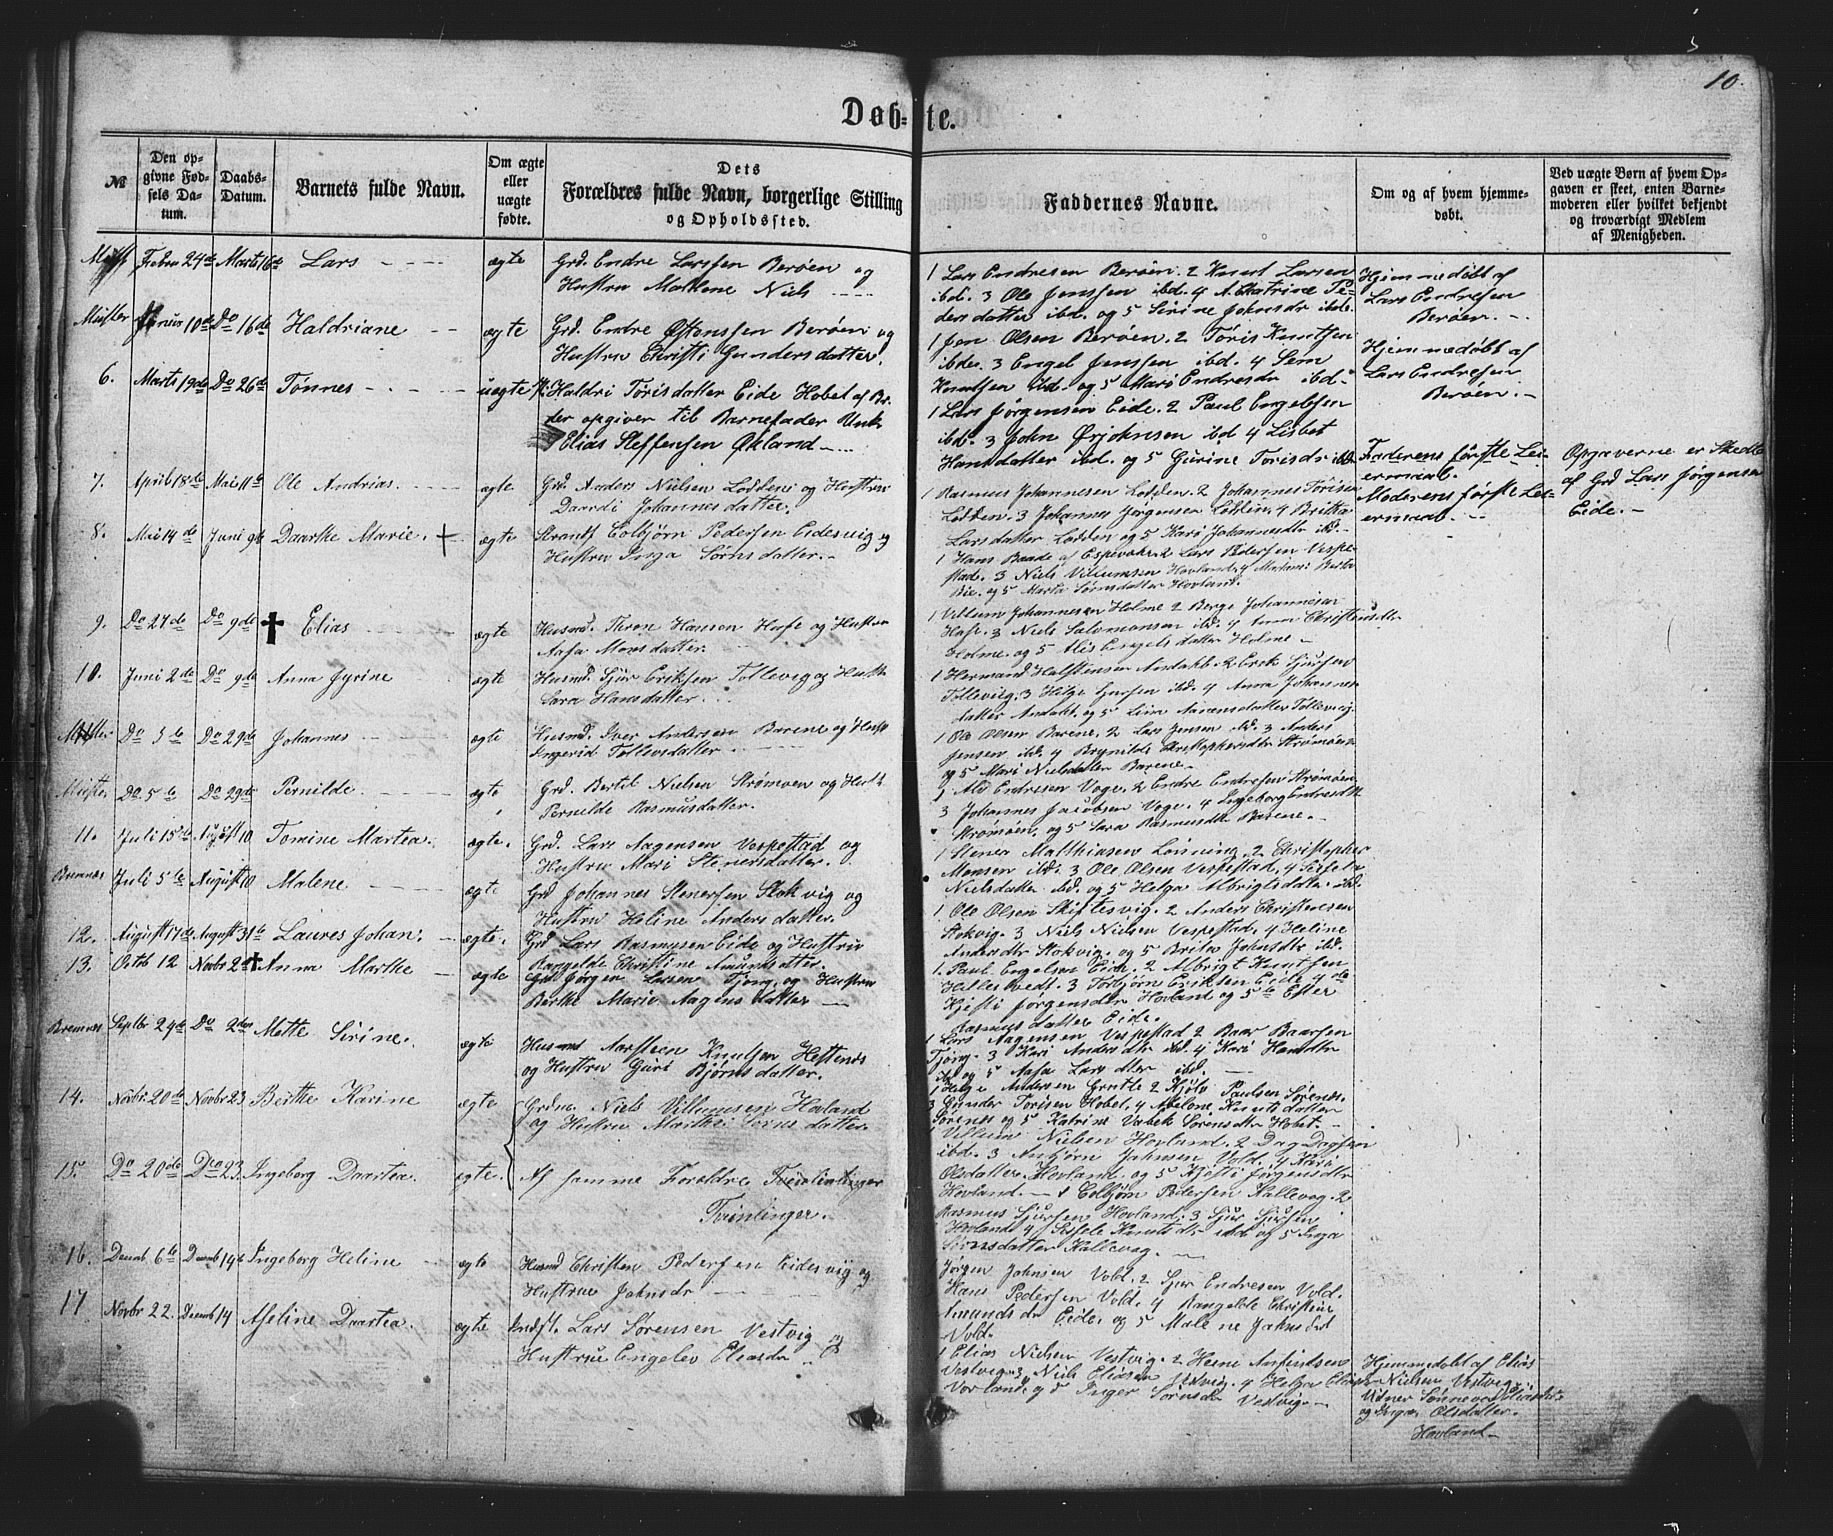 10.
Døb-te.
№
Den opgivne Fødsels Datum.
Daabs-Datum.
Barnets fulde Navn.
Om ægte eller uægte fødte.
Dets Forældres fulde Navn, borgerlige Stilling og Opholdssted.
Faddernes Navne.
Om og af hvem hjemmedøbt.
Ved uægte Børn af hvem Opgaven er skeet, enten Barnemoderen eller hvilket bekjendt og troværdigt Medlem af Menigheden.
24de Marts 16de Lars ægte Grd. Endre Larssen Berøen og
Hustru Malene Niels
1 Lars Endresen Berøen. 2 Knut Larsen
ibd. 3 Ole Jenssen ibd. 4 A. Chatrine Pe-
dersdatter ibd. og 5 Sirine Johnsdr ibd.
Hjemmedøbt af
Lars Endresen
Berøen.
10de Do 16de Haldriane ægte Grd. Endre Østensen Berøen og
Hustru Christi Gundersdatter.
1 Jon Olsen Berøen. 2 Tóris Knutsen
ibd. 3 Engel Jenssen ibd. 4 Sem
Knutsen ibd. og 5 Mari Endresdr ibd.
Hjemmedøbt af
Lars Endresen
Berøen.
6. Marts 19de Do 26de Tønnes uægte Haldri Torisdatter Eide Hobet af
der opgiver til Barnefader Unk
Elias Steffensen Økland
1 Lars Jørgensen Eide. 2 Paul Engelsen
ibd. 3 John Ørjohnsen ibd 4 Lisbet
Hansdatter ibd. og 5 Gurine Torisdr ibd.
Faderens første Lei-
ermaal.
Moderens første Lei-
ermaal.
Opgaverne er Skedte
af Grd Lars Jørgensen
Eide.
7. April 18de Mai 11te Ole Andrias ægte Grd. Anders Nielsen Lodden og Hustru
Daardi Johannesdatter.
1 Rasmus Johannesen Lodden. 2 Johannes Torisen
Lodden. 3 Johannes Jørgensen Lodden. 4 Britha
Larsdatter Lodden og 5 Kari Johannesdtr ibd.
8. Mai 14de Juni 9de Daarthe Marie. + ægte Strands Colbjørn Pedersen Eidesvig og
Hustru Inga Sørnsdatter.
1 Hans Baade af Espevær. 2 Lars Pedersen Vespe-
stad. 3 Niels Villumsen Hovland. 4
og 5 Marta Sørnsdatter Hovland.
9. Do 27de Do 9de † Elias ægte Husmd. Thron Hansen Huse og Hustru
Aasa Monsdatter.
1 Villum Johannesen Holme 2 Berge Johannesen
Huse. 3 Niels Salomonsen ibd. 4 Anna Christensdtr
Holme. og 5 Engelsdatter Holme
10. Juni 2de Do 9de Anna Gyrine ægte Husmd. Sjur Eriksen Tollevig og Hustr
Sara Hansdatter.
1 Hermand Halstensen Andahl. 2 Erik Sjursen
Tollevig. 3 Helge Sjursen ibd. 4 Anna Johannes-
datter Andahl. og 5
Do 5te Do 29de Johannes ægte Husmd. Iver Andersen Barene og Hustr
Ingerid Tollevsdatter.
1 Ole Olsen Barene. 2 Lars Jensen ibd. 3 Anders
Jensen ibd. 4 Brynilde Christophersdtr Strømøen
og 5 Mari Nielsdatter Barene.
Do 5te Do 29de Pernilde ægte Grd. Bertil Nielsen Strømøen og Hustr
Pernilde Rasmusdatter.
1 Endresen Voge. 2 Endre Endresen Strømøen.
3 Johannes Jacobsen Voge. 4 Ingeborg Endresdtr
Strømøen. og 5 Sara Rasmusdtr Barene.
11. Juli 15de August 10 Tomine Martea. ægte. Grd. Lars Aagensen Vespestad og
Hustru Mari Stenersdatter.
1 Stener Matthiasen Lønning. 2 Christopher
Monsen ibd. 3 Ole Olsen Vespestad. 4 Sissela
Nielsdatter ibd. og 5 Helga Albrigtsdatter ibd.
Bremnes Juli 5te August 10 Malene ægte Grd Johannes Stenersen Stokvig og
Hustru Heline Andersdatter.
1. Ole Olsen Skiftesvig. 2 Anders Christensen
Stokvig. 3 Niels Nielsen Vespestad. 4 Heline
Andersdtr Stokvig. og 5 Brita Johnsdtr ibd.
12. August 17de August 31te Laures Johan. ægte. Grd Lars Rasmussen Eide og Hustru
Rangelde Christine Amundsdatter.
1. Paul Engelsen Eide. 2 Albrigt Knutsen
Hillesvedt. 3 Torbjørn Eriksen Eide 4de
Kjesti Jørgensdtr Hovland og 5te Ester
Rasmusdatter Eide.
13. Octob 12 Novbr 2de † Anna Marthe ægte Grd Jørgen Larsen Tjong. og Hustru
Berthe Marie Aagensdatter
1 Lars Aagensen Vespestad 2 Baar Baarsen
Tjong. 3 Kari Andersdtr ibd. 4 Kari Hansdtr
ibd og 5 Aasa Larsdtter ibd.
Bremnes Septbr 24de Do 2den Mette Sirine. ægte Husmd Aarsteen Knutsen Hettenes
og Hustru Guri Bjørnsdatter.
1 Helge Andersen Grutle 2 Kjøln Paulsen Sørenes.
3 Gunder Torisen Hobet. 4 Abelone Knutsdatter
Sørenes og 5 Katrine Vabek Sørensdtr Hobet
14. Novbr. 20de Novbr 23 Berthe Karine ægte Grdm. Niels Villumsen Hovland
og Hustru Marthe Sørnsdatter.
1 Villum Nielsen Hovland. 2 Dag Dagsen
ibd. 3 Anbjørn Johnsen Vold. 4 Kari
Olsdatter Hovland. og 5 Kjesti Jørgensdtr
Hovland.
15. Do 20de Do 23. Ingeborg Daartea. ægte. Af samme Forældre
Tvinlinger.
1 Colbjørn Pedersen Kallevag. 2
Rasmus Sjursen Hovland. 3 Sjur Sjursen
Hovland 4 Sissele Knutsdtr ibd og 5 Inga
Sørnsdatter Kallevig.
16. Decmb 6te Decmb 14de Ingeborg Heline ægte Husmd Christen Pedersen Eidesvig og
Hustrue Johnsdr
Jørgen Johnsen Vold. 2 Sjur Endresen Vold.
Hans Pedersen Vold. 4 Rangelde Christine
Amundsdtr Eide. og 5 Malene Johnsdtr
Vold.
17 Novbr 22. Decmb 14 Aseline Daartea. ægte Indst. Lars Sørensen Vestvig og
Hustrue Engelev Eliasdr
1 Elias Nielsen Vestvig. 2
Vestvig. 3 Niels Eliasen Vestvig. 4 Helga
Vorland. og 5 Inger Sørnsdr Vestvig.
Hjemmedøbt af Elias
Nielsen Vestvig.
Vidner
og Inger Olsdatter.
Hovland